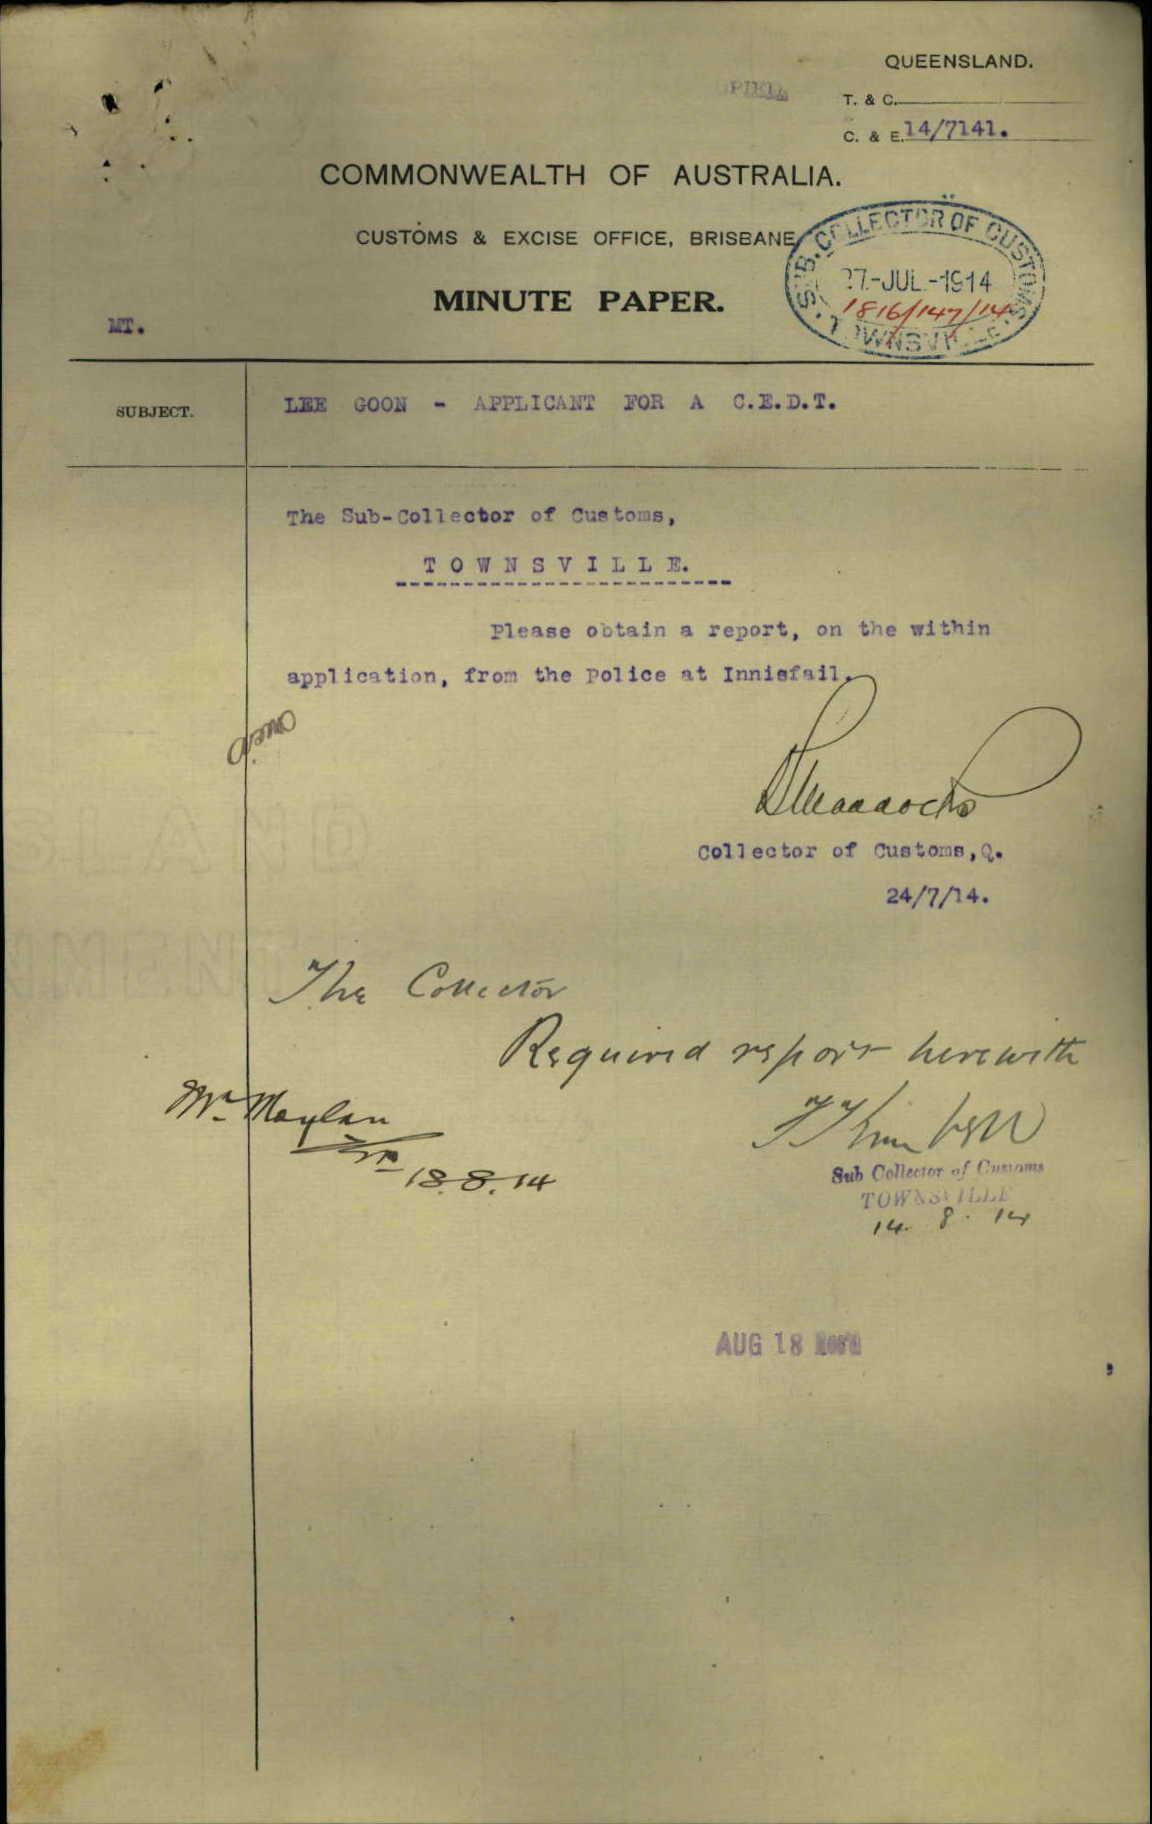 QUEENSLAND.
T. & C.
C. & E. 14/7141.
COMMONWEALTH OF AUSTRALIA.
CUSTOMS & EXCISE OFFICE, BRISBANE
SUB. COLLECTOR OF CUSTOMS.
27-JUL.-1914
1816/147/14
TOWNSVILLE
MINUTE PAPER.
MT.
SUBJECT.
LEE GOON - APPLICANT FOR A C.E.D.T.
The Sub-Collector of Customs,
TOWNSVILLE.
Please obtain a report, on the within
application, from the Police at Innisfail.
Collector of Customs, Q.
24/7/14.
The Collector
Required report herewith
Mr. Moylan
18.8.14
Sub Collector of Customs
TOWNSVILLE
14. 8. 14
AUG 18